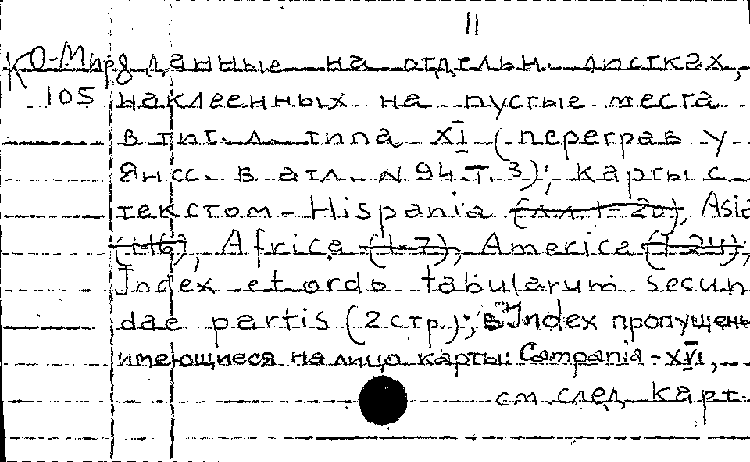 II
КО-Мир 8 данные на отдельн. листках,
105 наклеенных на пустые места
в тит. л. типа XI (переграв у
Янсс. в атл. N 94. Т. 3); карты с
текстом - Hispania (лл. 1-20), Asia
(1-16), Africa (1-7), America (1-24),
Index et ordo tabularum secun
dae partis (2 стр.); в Index пропущены
имеющиеся на лицо карты: Campania - XVI,
см. след. карт.